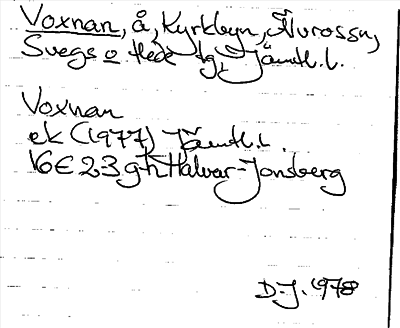 Voxnan, å, Kyrkbyn, Älvros sn,
Svegs o Hede tg, Jämtl.l.
Voxnan
ek (1977) Jämtl.l.
16E 2-3 g-h Halvar-Jonsberg
D-J. 1978